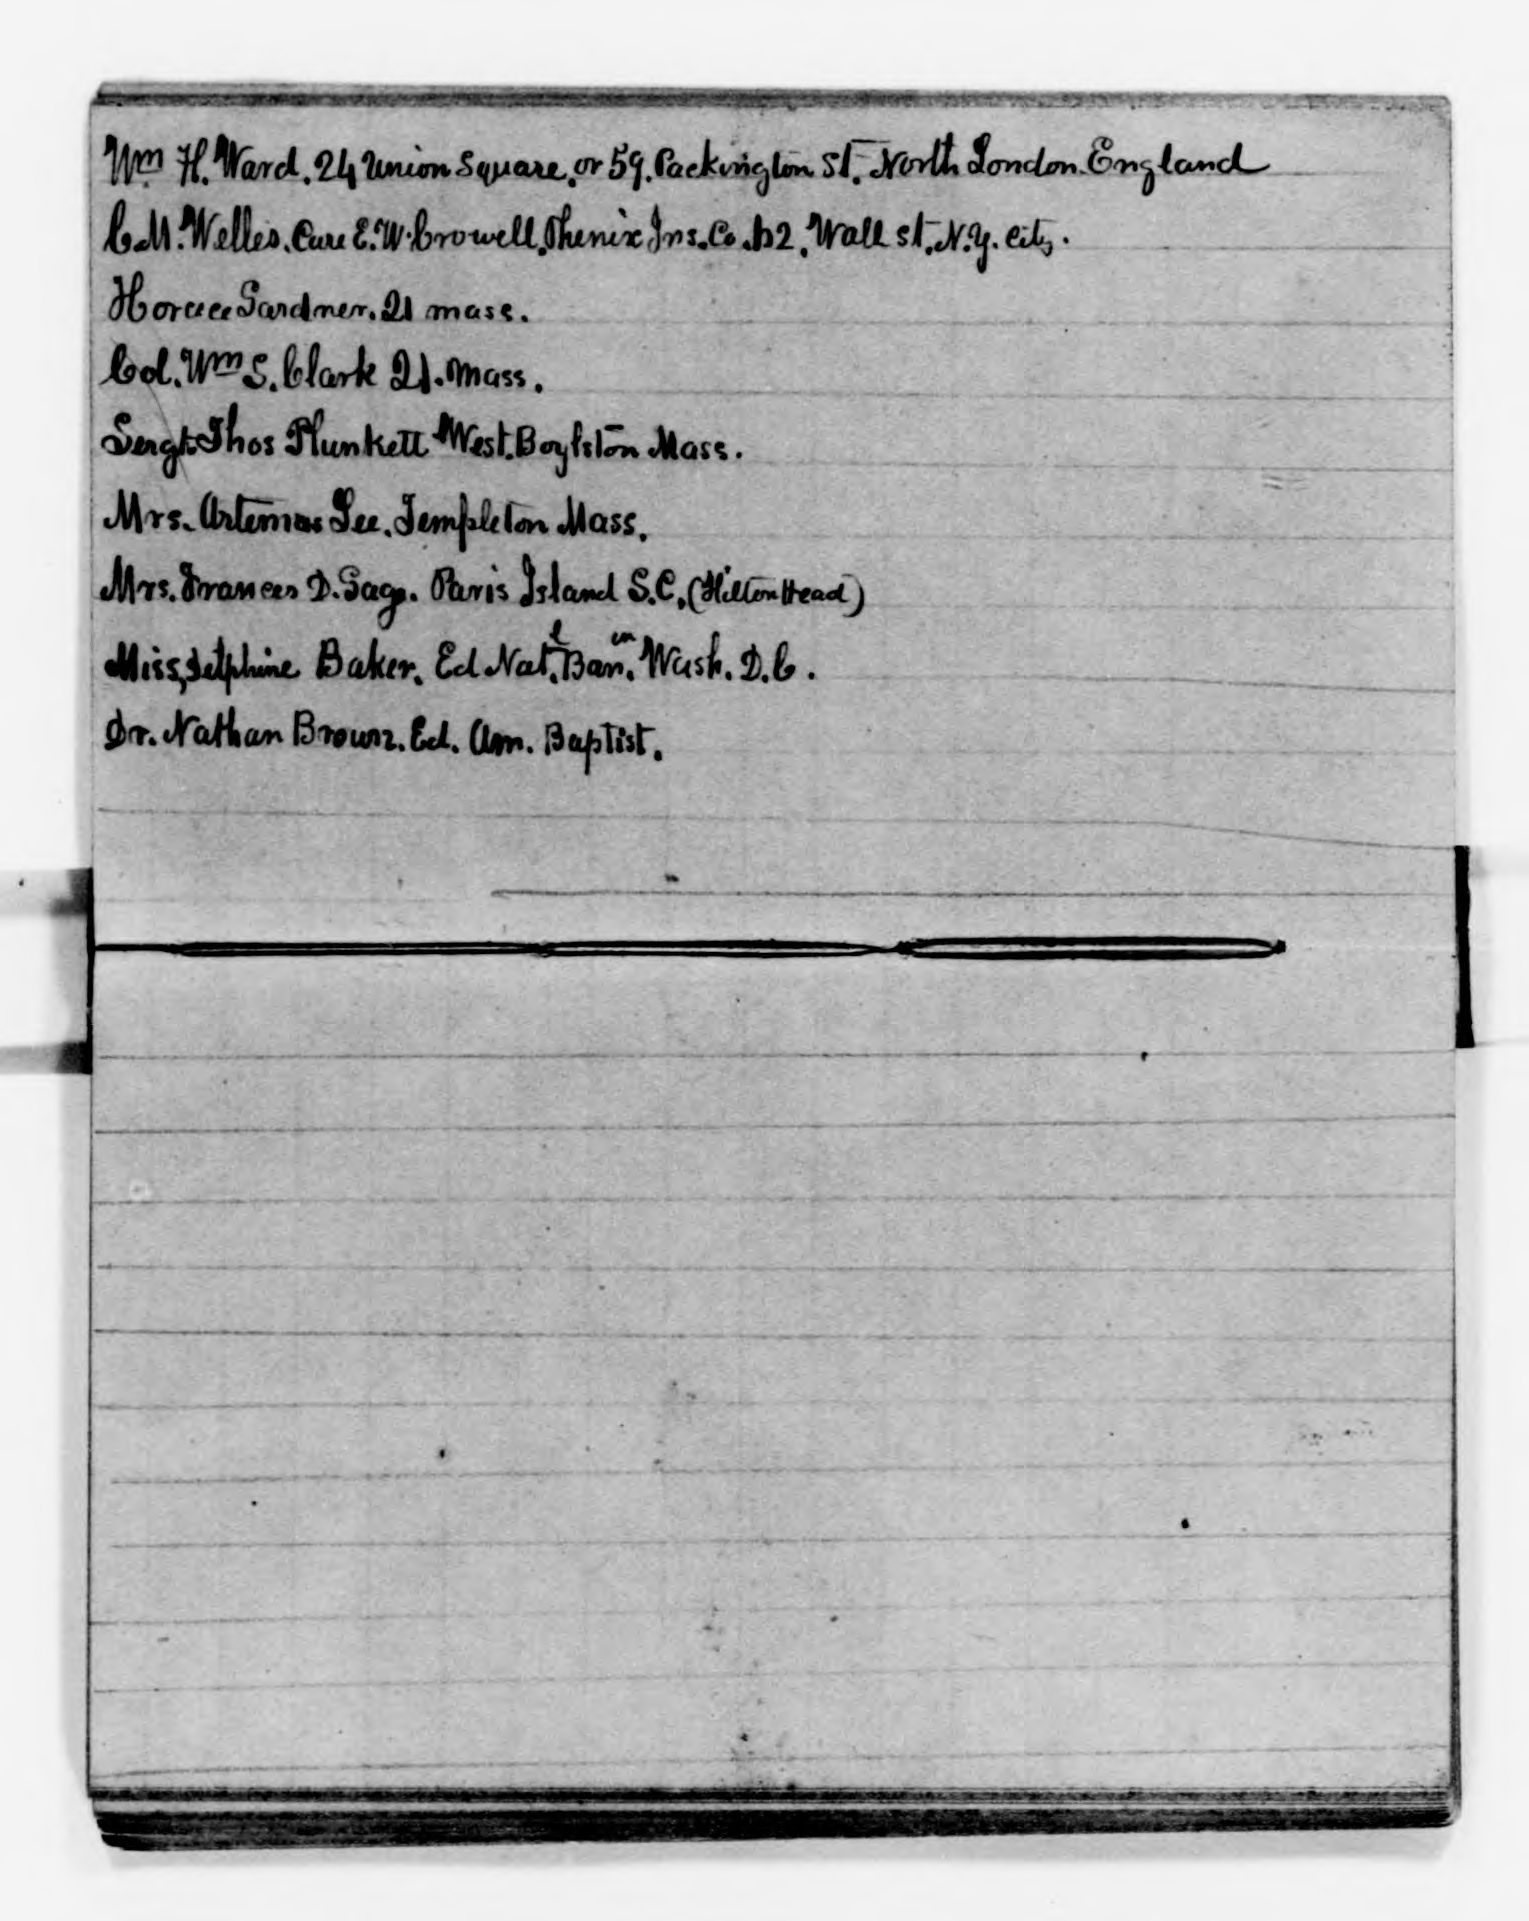 Wm H. Ward. 24 Union Square. or 59. Packington St. North London. England
C.M. Welles. Care E.W. Crowell. Phenix Ins. Co. 62. Wall st. N.Y. City.
Horace Gardner. 21 mass.
Col. Wm S. Clark 21. Mass.
Sergt Thos Plunkett West. Boylston Mass.
Mrs. Artemas Lee. Templeton Mass.
Mrs. Frances D. Gage. Paris Island S.C. (Hilton Head)
Miss, Delphine Baker. Ed Natl. Banen. Wash. D.C.
Dr. Nathan Brown. Ed. Am. Baptist.